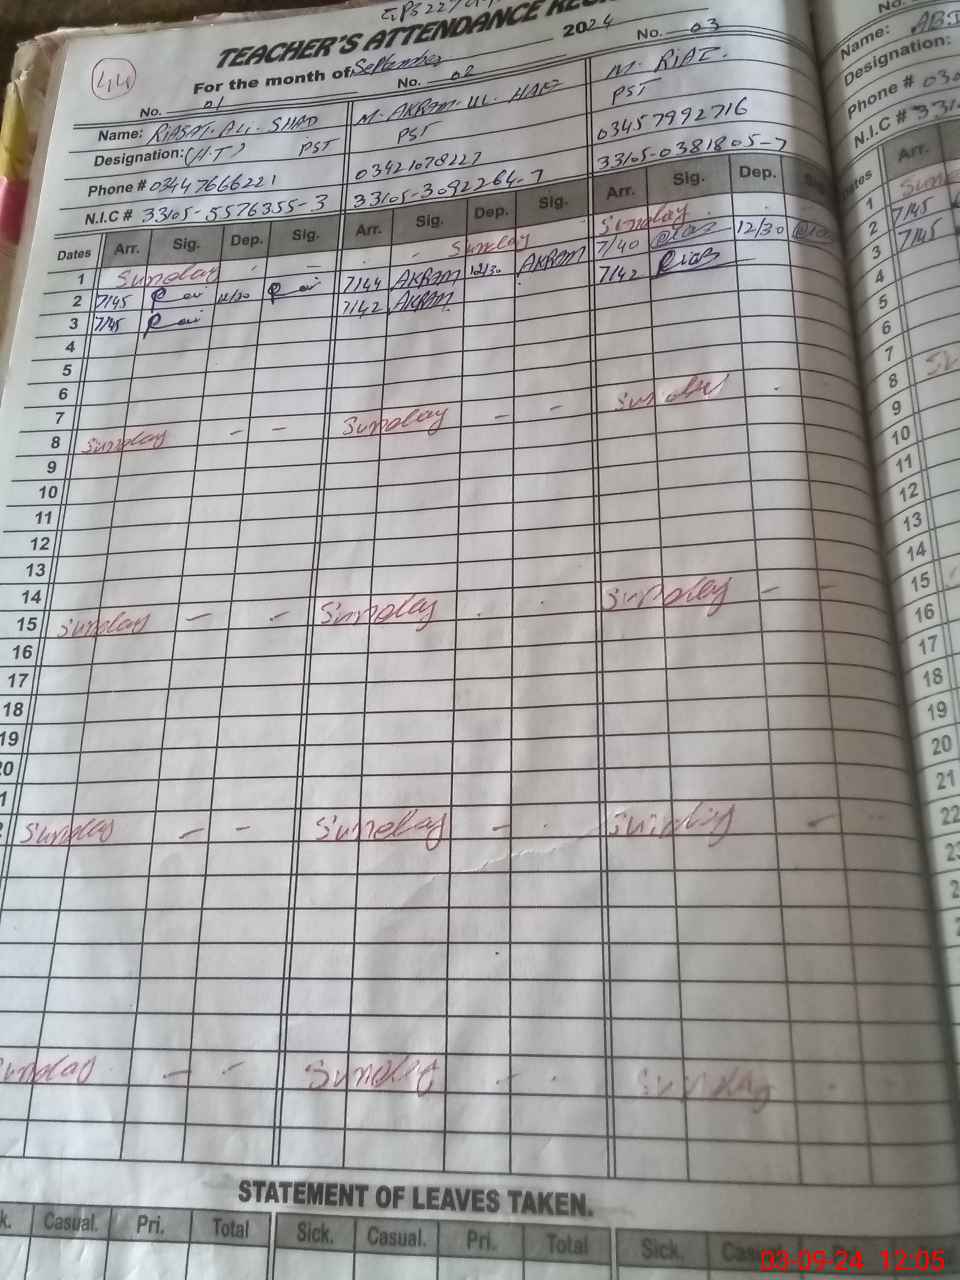 44
TEACHER'S ATTENDANCE
For the month of September 2024
No. 01 No. 02 No. 03
Name: RIASAT. ALI. SHAD M. AKRAM. UL. HAQ M. RIAZ.
Designation: (H.T) PST PST PST
Phone # 03447666221 03421078227 03457992716
N.I.C # 33105-5576355-3 33105-3092264-7 33105-0381805-7
Dates Arr. Sig. Dep. Sig. Arr. Sig. Dep. Sig. Arr. Sig. Dep.
1 Sunday - - Sunday Sunday
2 7/45 12/30 7/44 AKRAM 12/30 AKRAM 7/40 Riaz 12/30 Riaz
3 7/45 7/42 AKRAM 7/42 Riaz
4
5
6
7
8 Sunday - - Sunday - - Sunday
9
10
11
12
13
14
15 Sunday - - Sunday Sunday - -
16
17
18
19
20
Sunday - - Sunday - Sunday -
Sunday - - Sunday Sunday
STATEMENT OF LEAVES TAKEN.
Casual. Pri. Total Sick. Casual. Pri. Total Sick.
No.
Name:
Designation:
Phone #
N.I.C #
Arr.
1
2 7/45
3 7/45
4
5
6
7
8
9
10
11
12
13
14
15
16
17
18
19
20
21
22
03-09-24 12:05